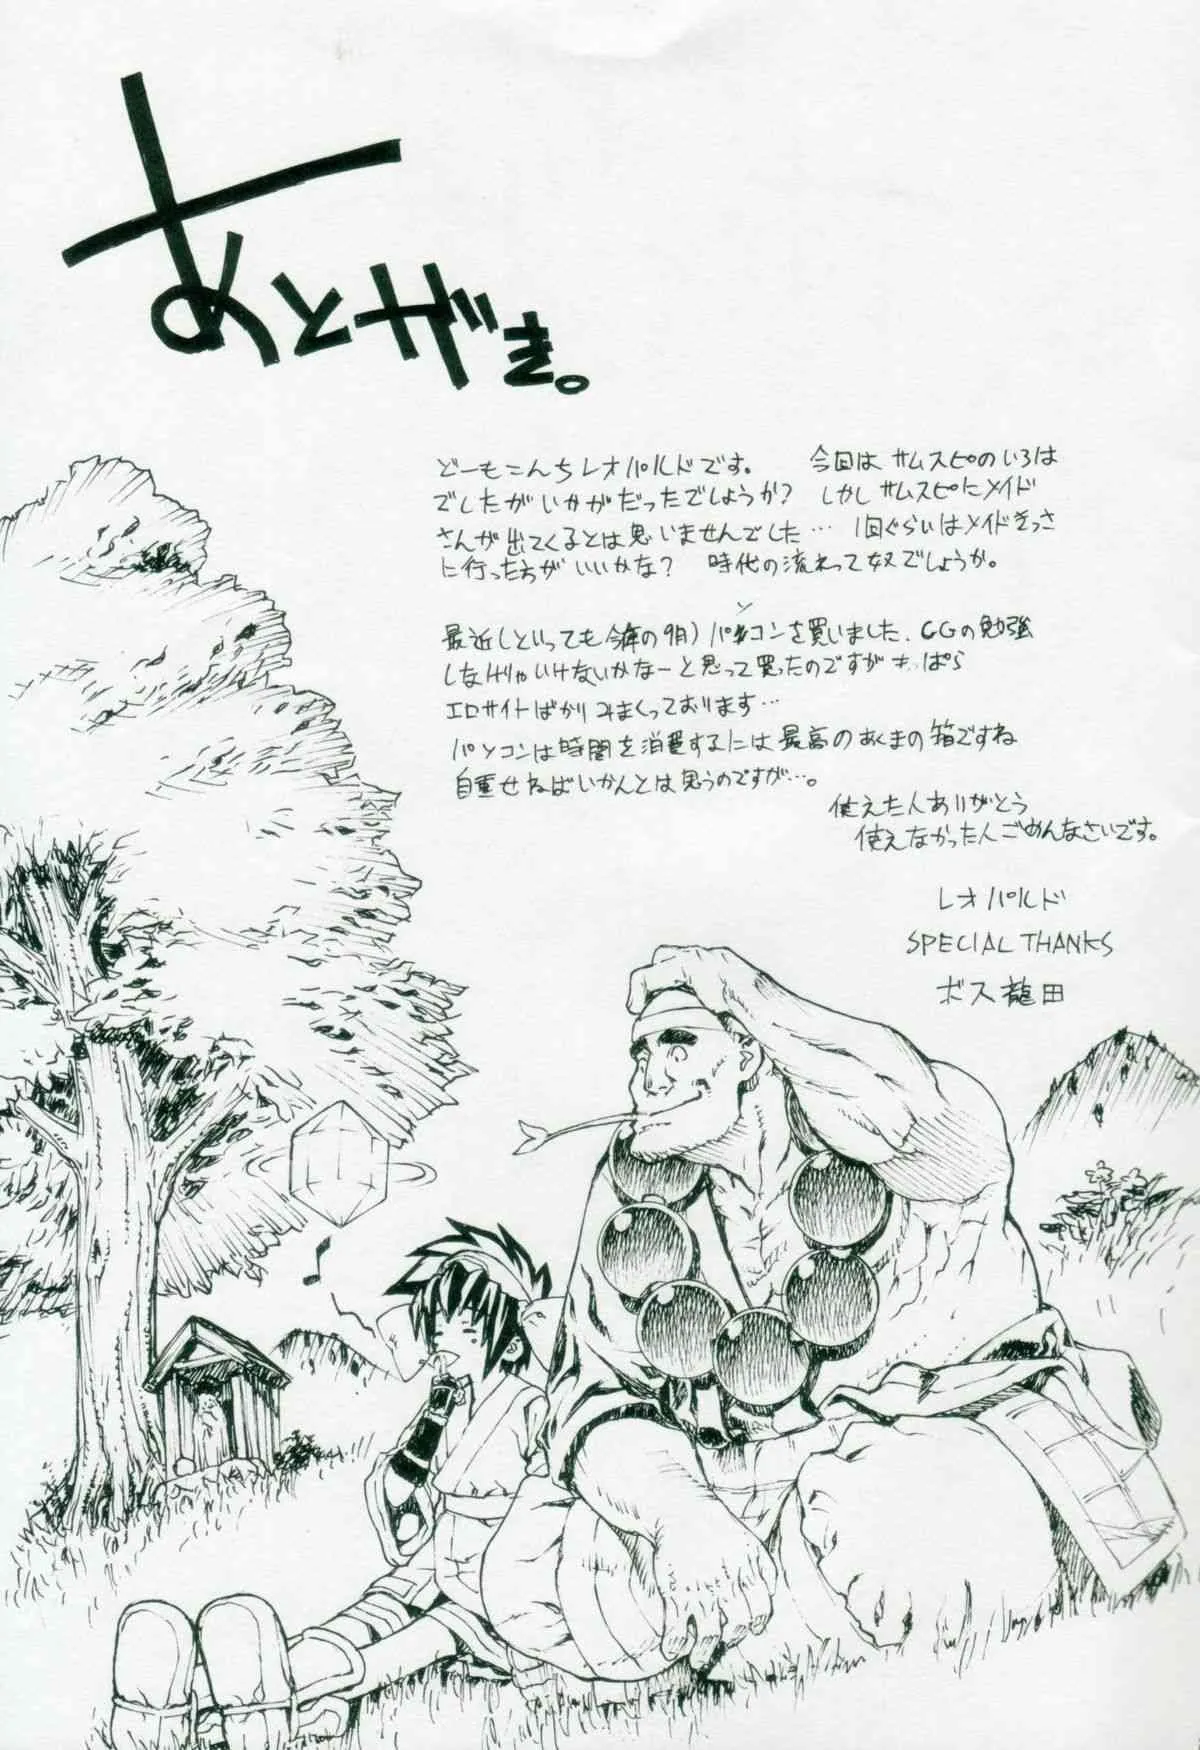 あとがき。
どーもこんちレオパルドです。 今回は サムスピのいろは
でしたがいかがだったでしょうか? しかしサムスピにメイド
さんが出てくるとは思いませんでした… 1回ぐらいはメイドきっさ
に行った方がいいかな? 時代の流れって奴でしょうか。
最近(といっても今年の9月)パソコンを買いました、CGの勉強
しなければいけないかなーと思って買ったのですが もっぱら
エロサイトばかりみまくっております…
パソコンは時間を消費するには最高のあくまの箱ですね
自重せねばいかんとは思うのですが…。
使えた人ありがとう
使えなかった人ごめんなさいです。
レオパルド
SPECIAL THANKS
ボス龍田
♪